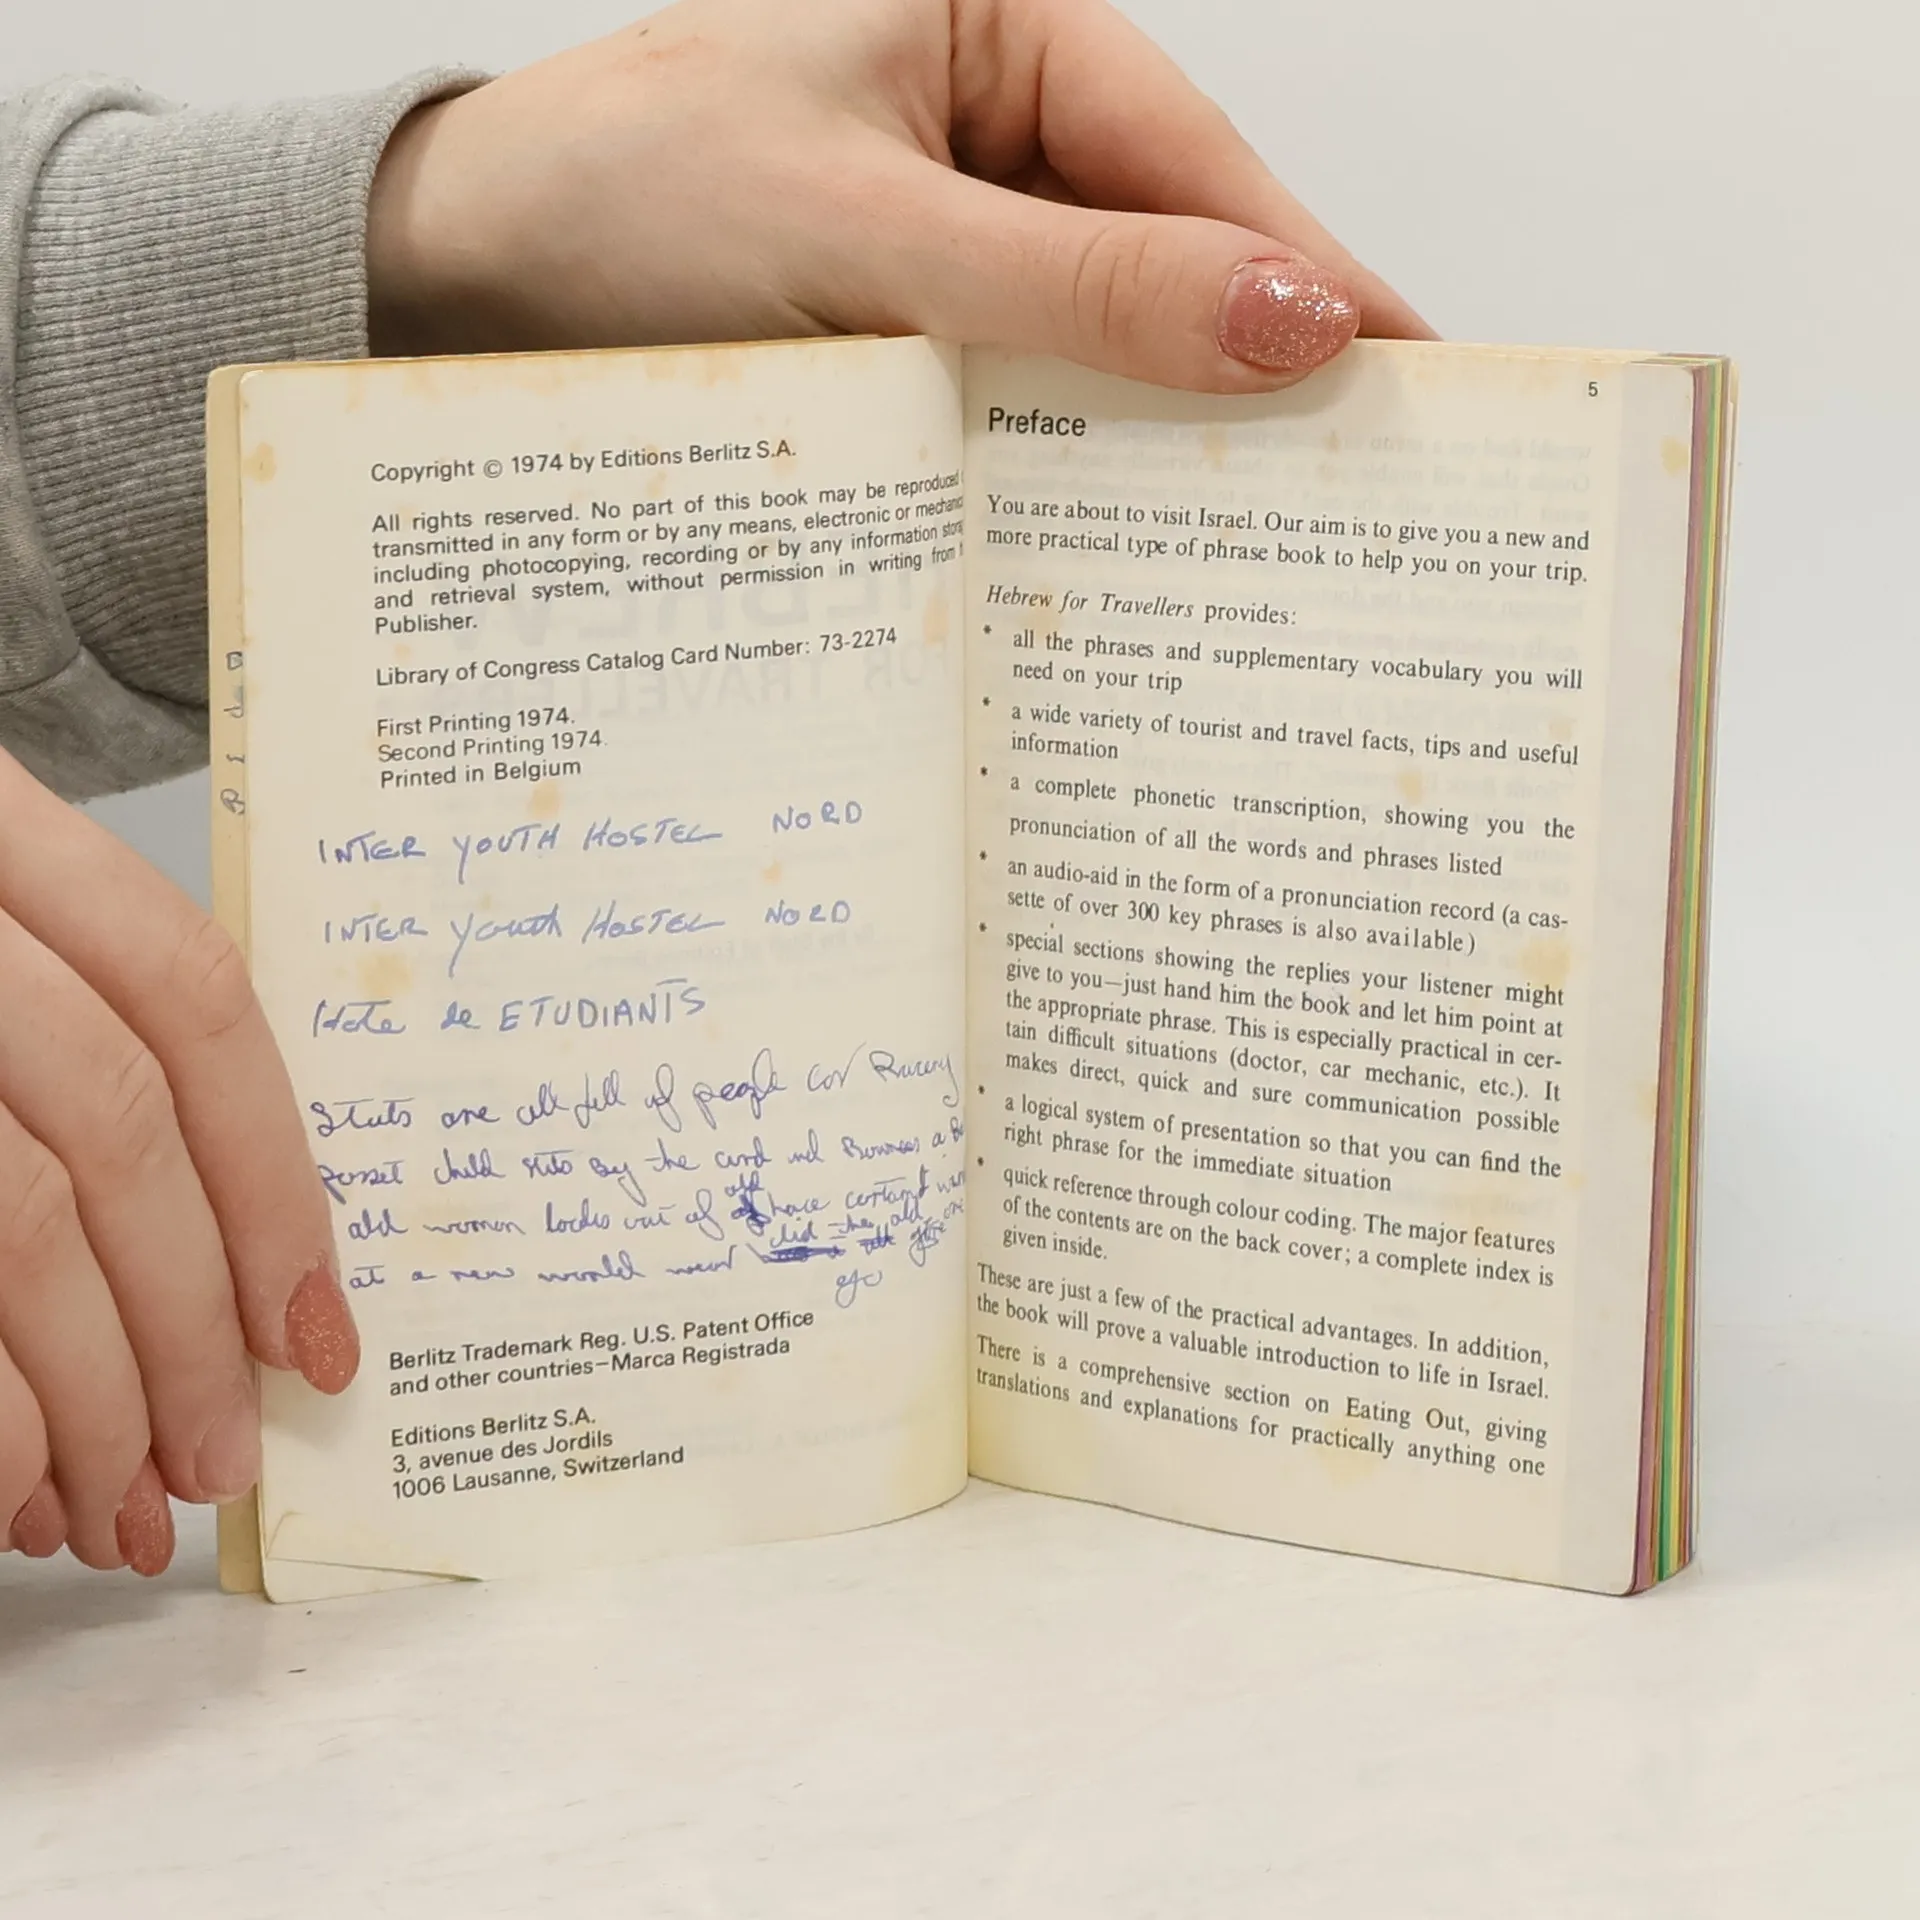 Copyright © 1974 by Editions Berlitz S.A.
All rights reserved. No part of this book may be reproduced
transmitted in any form or by any means, electronic or
including photocopying, recording or by any information
and retrieval system, without permission in writing from
Publisher.
Library of Congress Catalog Card Number: 73-2274
First Printing 1974.
Second Printing 1974.
Printed in Belgium
INTER YOUTH HOSTEL NORD
INTER Youth HOSTEL NORD
de ETUDIANTS
are all of people
child by the and a
old women looks out of have
at a new world
Berlitz Trademark Reg. U.S. Patent Office
and other countries–Marca Registrada
Editions Berlitz S.A.
3, avenue des Jordils
1006 Lausanne, Switzerland
5
Preface
You are about to visit Israel. Our aim is to give you a new and
more practical type of phrase book to help you on your trip.
Hebrew for Travellers provides:
* all the phrases and supplementary vocabulary you will
need on your trip
* a wide variety of tourist and travel facts, tips and useful
information
* a complete phonetic transcription, showing you the
pronunciation of all the words and phrases listed
* an audio-aid in the form of a pronunciation record (a cas-
sette of over 300 key phrases is also available)
* special sections showing the replies your listener might
give to you—just hand him the book and let him point at
the appropriate phrase. This is especially practical in cer-
tain difficult situations (doctor, car mechanic, etc.). It
makes direct, quick and sure communication possible
* a logical system of presentation so that you can find the
right phrase for the immediate situation
* quick reference through colour coding. The major features
of the contents are on the back cover; a complete index is
given inside.
These are just a few of the practical advantages. In addition,
the book will prove a valuable introduction to life in Israel.
There is a comprehensive section on Eating Out, giving
translations and explanations for practically anything one